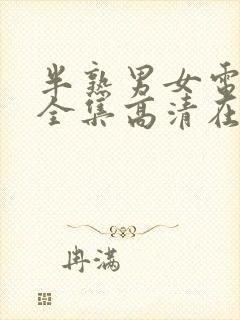 半熟男女电
全集高清在
冉满